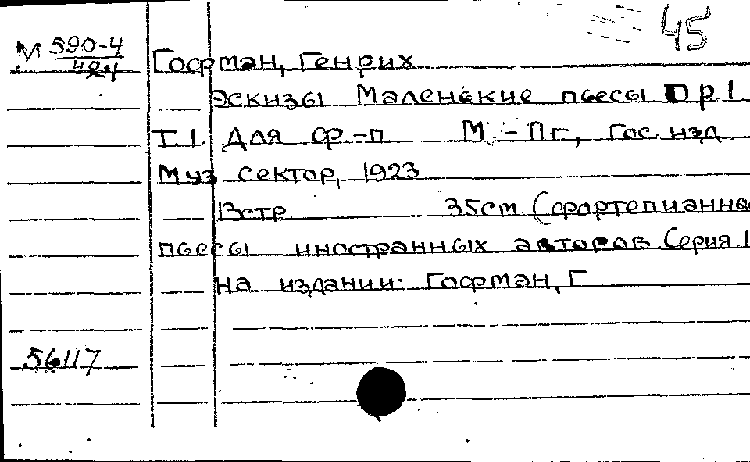 45
М 590-4
484
Гофман, Генрих
Эскизы Маленькие пьесы Op 1
Т.1. Для ф.-п М.-Пг., Гос. изд
Муз сектор, 1923
13стр 35см (Фортепианные
пьесы иностранных авторов Серия 1
На издании: Гофман, Г
56117